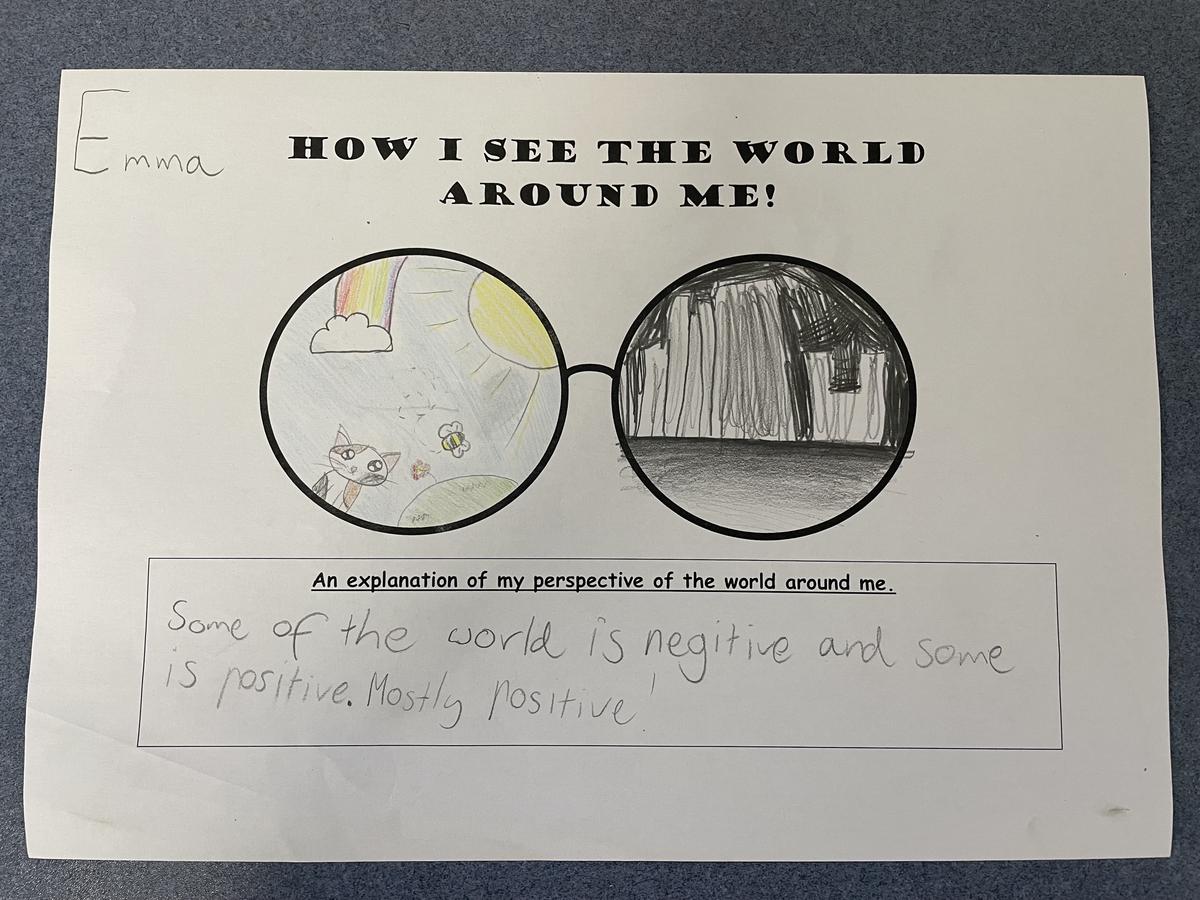 Emma
HOW I SEE THE WORLD
AROUND ME!
An explanation of my perspective of the world around me.
Some of the world is negitive and some
is positive. Mostly positive!